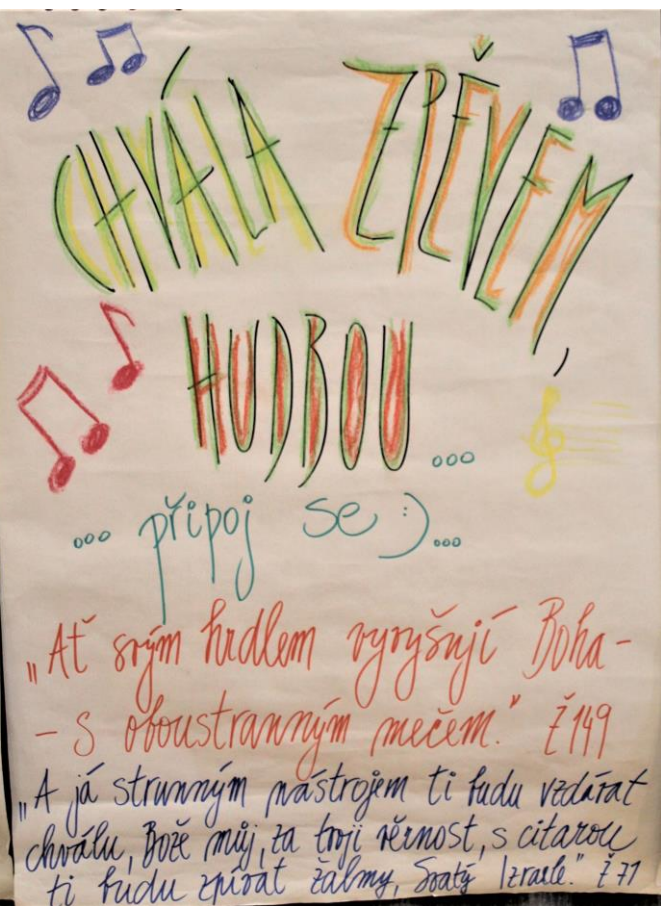 CHVÁLA ZPĚVEM,
HUDBOU ...
... připoj se :) ...
„Ať svým hrdlem vyvyšují Boha -
- s oboustranným mečem." Ž 149
„A já strunným nástrojem ti budu vzdávat
chválu, Bože můj, za tvoji věrnost, s citarou
ti budu zpívat žalmy, Svatý Izraele." Ž 71